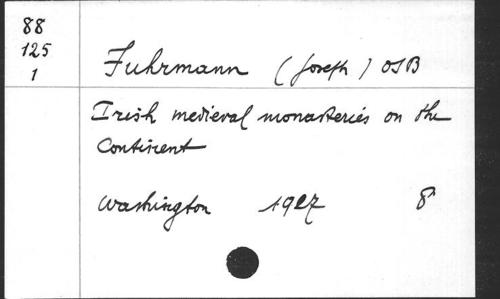 88
125
1
Fuhrmann (Joseph) OSB
Irish medieval monasteries on the
Continent
Washington 1927 8°